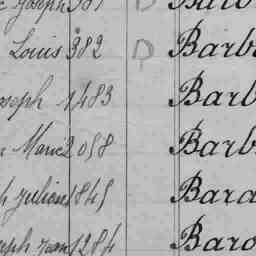 Joseph 381 Barb
Louis 382 D Barb
oseph 1483 Barb
Marie 2098 Barb
h Julien 1845 Bara
seph Jean 1284 Baro